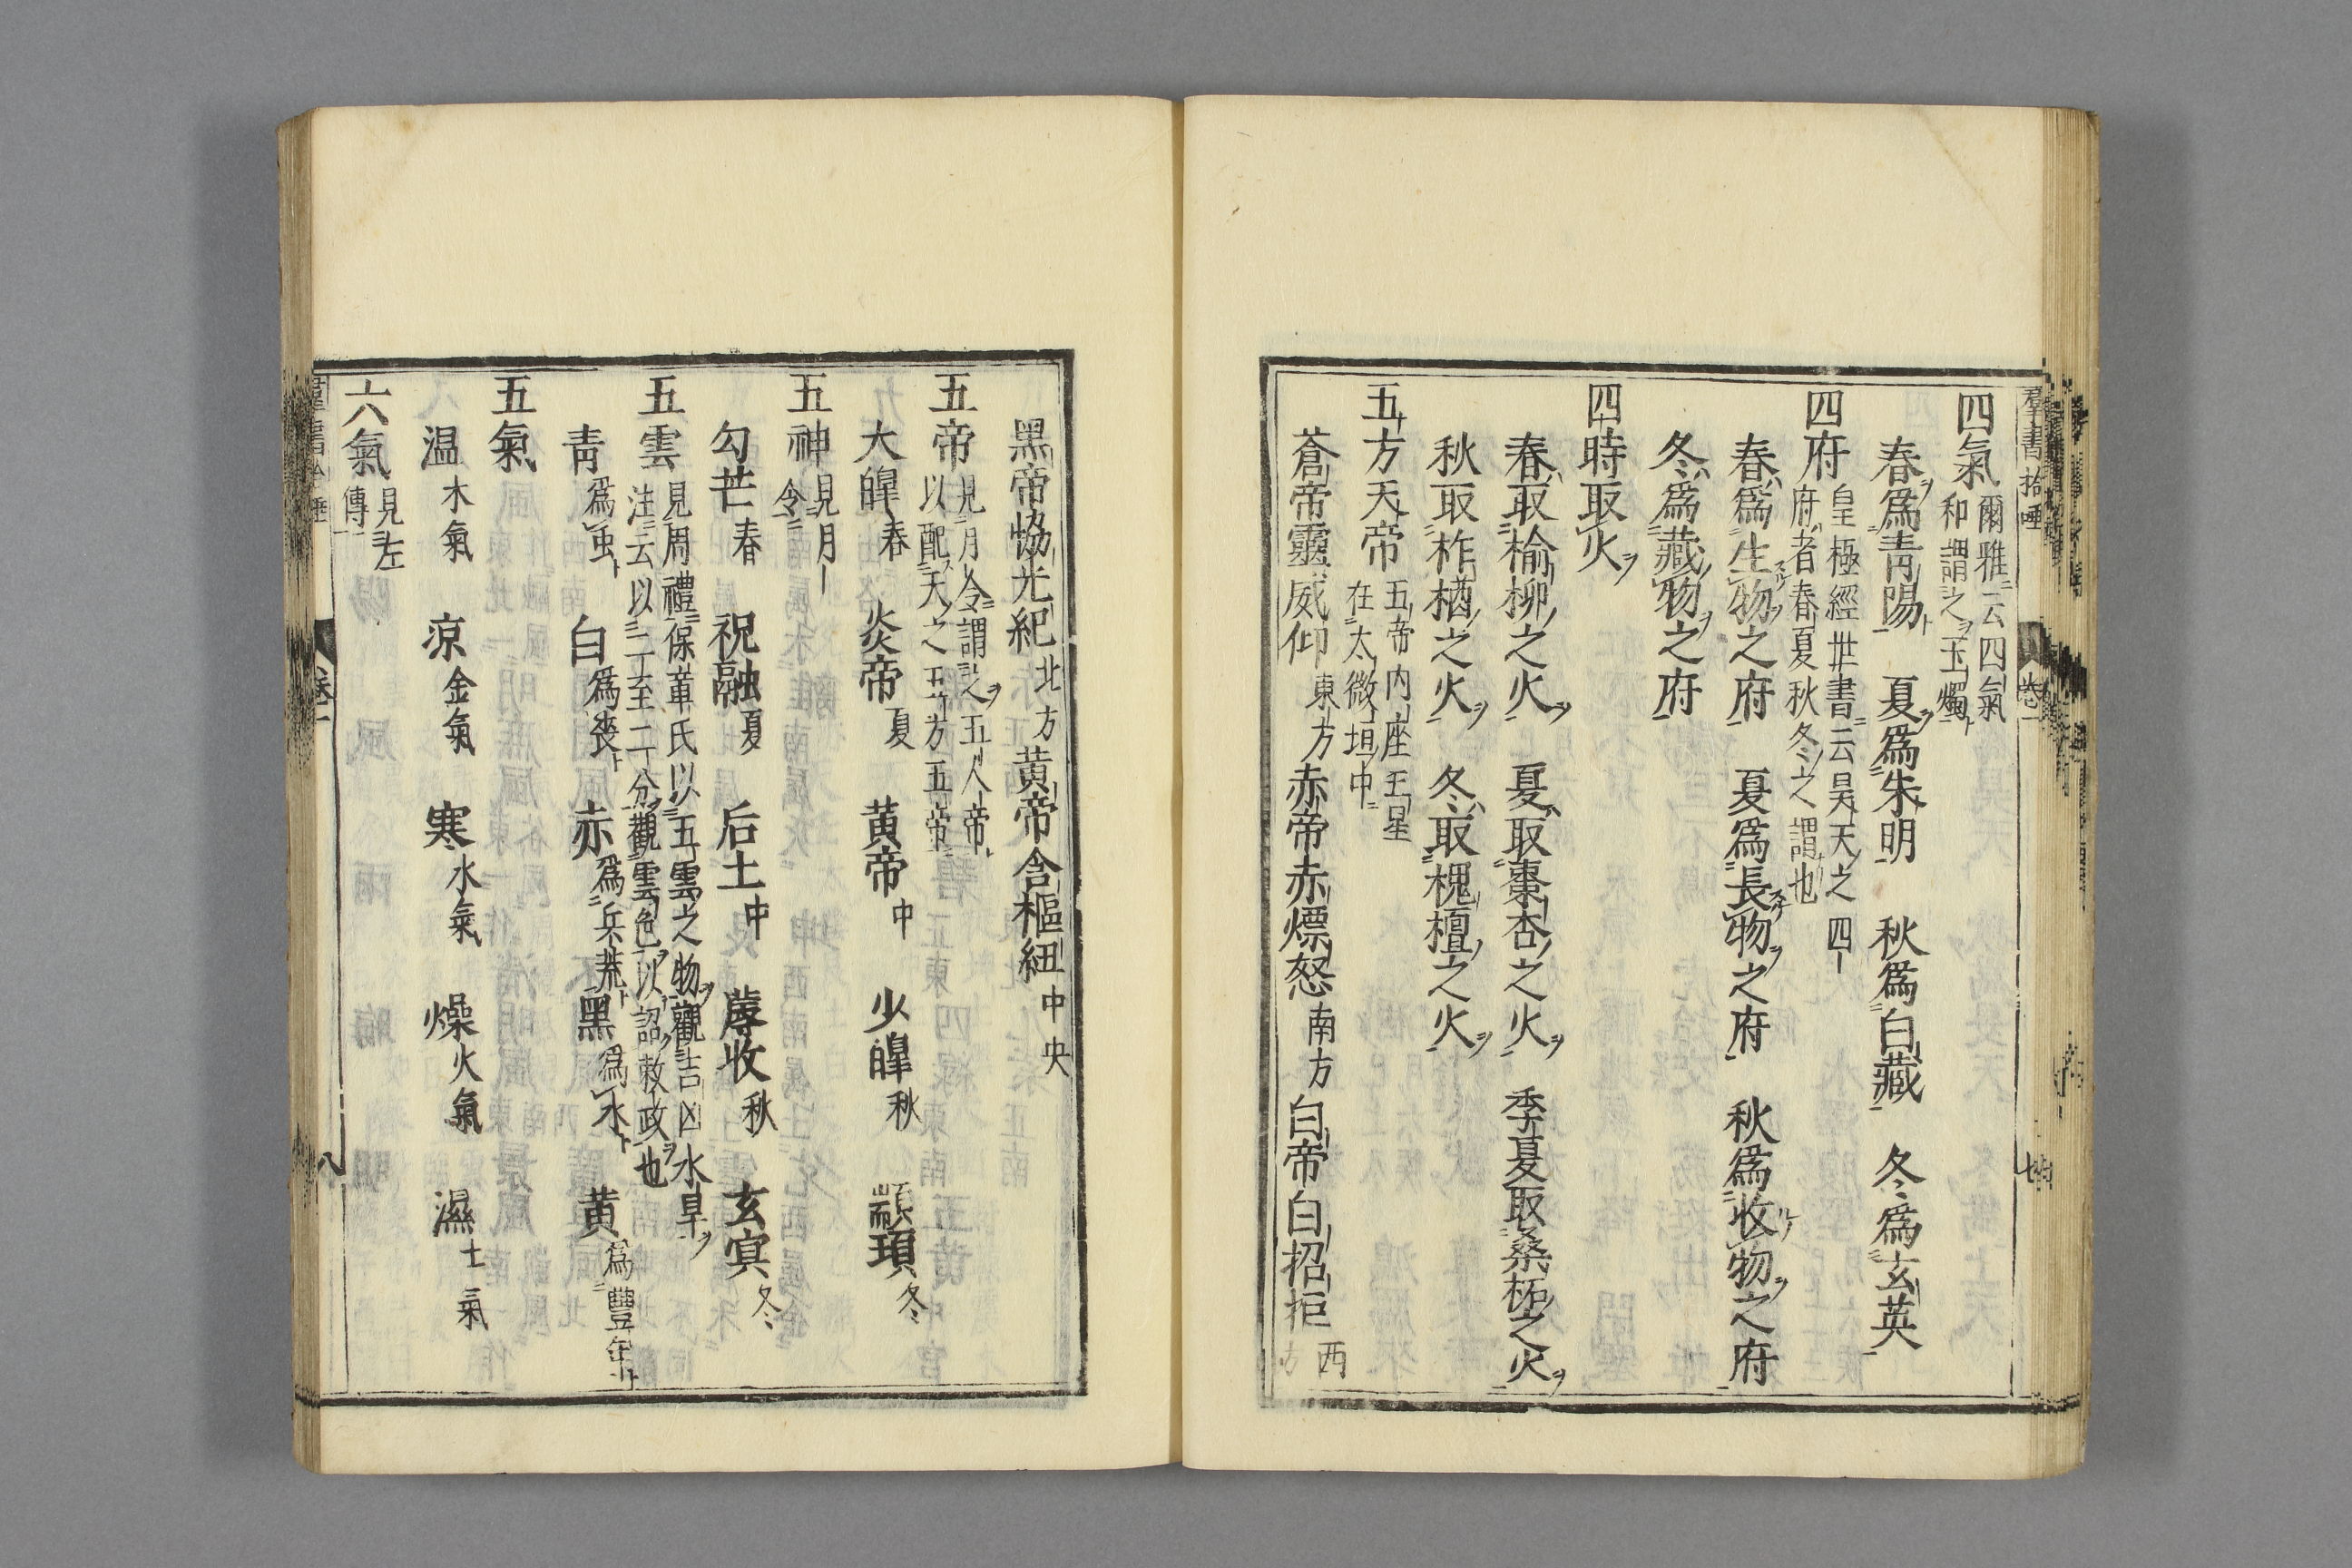 羣書拾唾 卷一 七
四氣 爾雅云四氣和謂之玉燭
春爲靑陽 夏爲朱明 秋爲白藏 冬爲玄英
四府 皇極經世書云昊天之四府者春夏秋冬之謂也
春爲生物之府 夏爲長物之府 秋爲收物之府
冬爲藏物之府
四時取火
春取榆柳之火 夏取棗杏之火 季夏取桑柘之火
秋取柞楢之火 冬取槐檀之火
五方天帝 五帝內座五星在太微垣中
蒼帝靈威仰 東方 赤帝赤熛怒 南方 白帝白招拒 西方
黑帝恊光紀 北方 黃帝含樞紐 中央
五帝 見月令謂之五人帝以配天之五方五帝
大皥 春 炎帝 夏 黃帝 中 少皥 秋 顓頊 冬
五神 見月令
勾芒 春 祝融 夏 后土 中 蓐收 秋 玄冥 冬
五雲 見周禮保章氏以五雲之物觀吉凶水旱注云以二至二分觀雲色以詔救政也
靑 爲虫 白 爲喪 赤 爲兵荒 黑 爲水 黃 爲豐年
五氣
温 木氣 凉 金氣 寒 水氣 燥 火氣 濕 土氣
六氣 見左傳
卷一 八